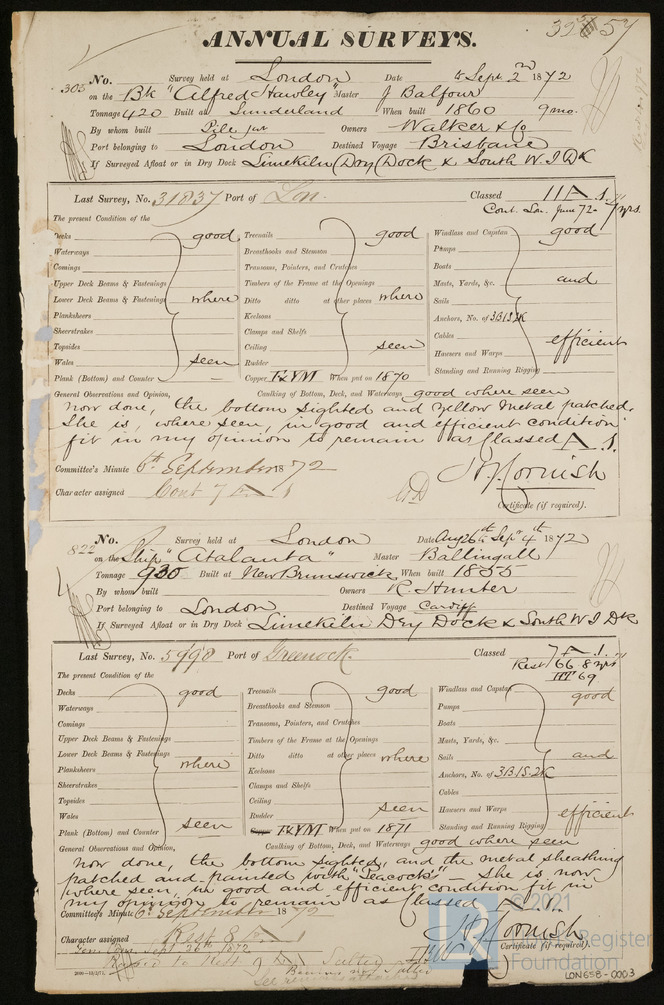 39 57
ANNUAL SURVEYS.
303 No. Survey held at London Date to Sept. 2nd 1872
on the Bk "Alfred Hawley" Master J Balfour
Tonnage 420 Built at Sunderland When built 1860 9mo.
By whom built Pile jnr Owners Walker & Co
Port belonging to London Destined Voyage Brisbane
If Surveyed Afloat or in Dry Dock Limekiln Dry Dock & South W I Dk
Last Survey, No. 31837 Port of Lon. Classed 11 A 1.
Cont. Lon. June 72 - 7 yrs.
The present Condition of the
Decks good Treenails good Windlass and Capstan good
Waterways Breasthooks and Stemson Pumps
Comings Transoms, Pointers, and Crutches Boats
Upper Deck Beams & Fastenings Timbers of the Frame at the Openings Masts, Yards, &c. and
Lower Deck Beams & Fastenings where Ditto ditto at other places where Sails
Planksheers Keelsons Anchors, No. of 3B 1S 2K
Sheerstrakes Clamps and Shelfs Cables efficient
Topsides Ceiling seen Hawsers and Warps
Wales seen Rudder Standing and Running Rigging
Plank (Bottom) and Counter — Copper F&YM When put on 1870
General Observations and Opinion, Caulking of Bottom, Deck, and Waterways good where seen
now done, the bottom sighted and yellow metal patched.
She is, where seen, in good and efficient condition
fit in my opinion to remain as Classed A 1.
Committee's Minute 6th September 1872
Character assigned Cont 7 A 1
Cornish
Certificate (if required).
822 No. Survey held at London Date Aug 26th Sepr 4th 1872
on the Ship "Atalanta" Master Ballingall
Tonnage 930 Built at New Brunswick When built 1855
By whom built Owners R. Hunter
Port belonging to London Destined Voyage Cardiff
If Surveyed Afloat or in Dry Dock Limekiln Dry Dock & South W I Dk
Last Survey, No. 5998 Port of Greenock. Classed 7 A 1.
Rest 66 8 yrs
69
The present Condition of the
Decks good Treenails good Windlass and Capstan good
Waterways Breasthooks and Stemson Pumps
Comings Transoms, Pointers, and Crutches Boats
Upper Deck Beams & Fastenings Timbers of the Frame at the Openings Masts, Yards, &c.
Lower Deck Beams & Fastenings where Ditto ditto at other places where Sails and
Planksheers Keelsons Anchors, No. of 3B 1S 2K
Sheerstrakes Clamps and Shelfs Cables
Topsides Ceiling seen Hawsers and Warps efficient
Wales seen Rudder Standing and Running Rigging
Plank (Bottom) and Counter Copper F&YM When put on 1871
General Observations and Opinion, Caulking of Bottom, Deck, and Waterways good where seen
now done, the bottom sighted, and the metal sheathing
patched and painted with "Peacocks" - She is now
where seen, in good and efficient condition fit in
my opinion to remain as Classed A 1.
Committee's Minute 6th September 1872
Character assigned Rest 8 A 1
Cornish
Certificate (if required).
Sept 26th 1872
© 2021
LR
Register
Foundation
LON658-0003